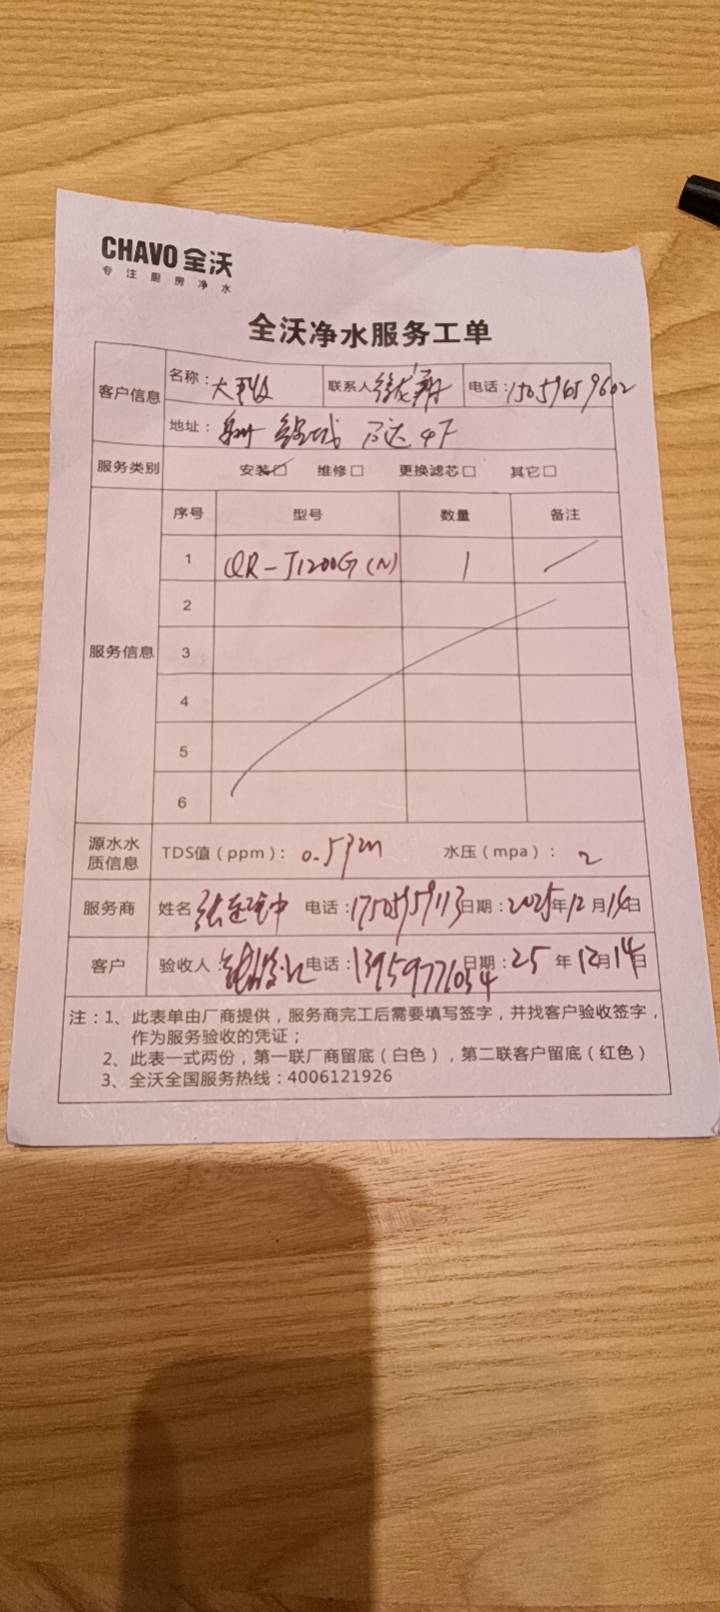 CHAVO 全沃
专注厨房净水
全沃净水服务工单
客户信息 名称： 联系人 电话：15059659602
地址： 万达 4F
服务类别 安装☑ 维修□ 更换滤芯□ 其它□
序号 型号 数量 备注
服务信息
1 QR-J1200G(N) 1
2
3
4
5
6
源水水质信息 TDS值（ppm）： 水压（mpa）：2
服务商 姓名 电话： 日期：2025年12月14日
客户 验收人： 电话：13959771054 日期：25年12月14日
注：1、此表单由厂商提供，服务商完工后需要填写签字，并找客户验收签字，
作为服务验收的凭证；
2、此表一式两份，第一联厂商留底（白色），第二联客户留底（红色）
3、全沃全国服务热线：4006121926